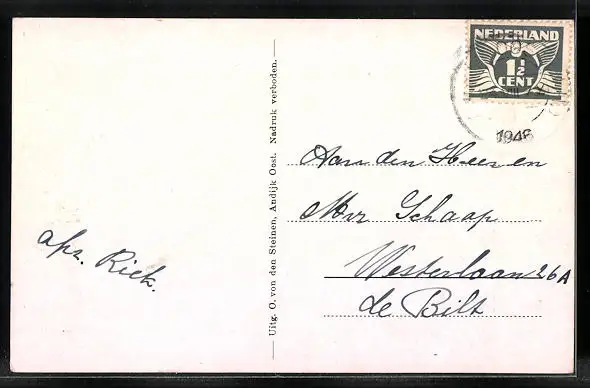 NEDERLAND
1½
CENT
1946
Uitg. O. von den Steinen, Andijk Oost. Nadruk verboden.
Aan den Heer en
Mvr Schaap
Westerlaan 26A
de Bilt
afz. Riek.